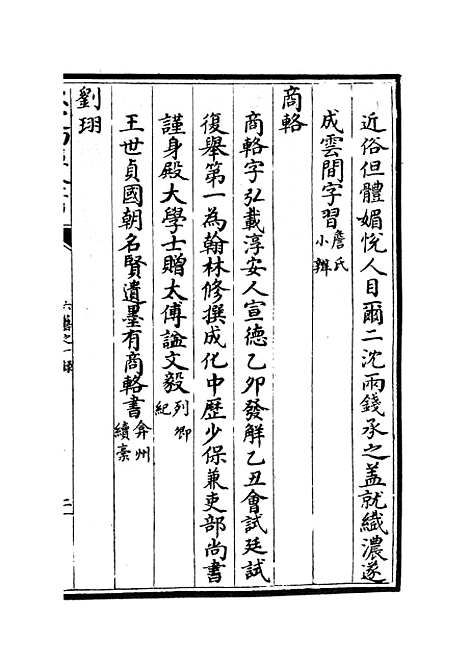 近俗但體媚悅人目爾二沈兩錢承之蓋就纎濃遂
成雲間字習詹氏小辨
商輅
商輅字弘載淳安人宣德乙卯發解乙丑會試廷試
復舉第一為翰林修撰成化中歴少保兼吏部尚書
謹身殿大學士贈太傅諡文毅列卿紀
王世貞國朝名賢遺墨有商輅書弇州續稾
劉珝
六藝之一錄